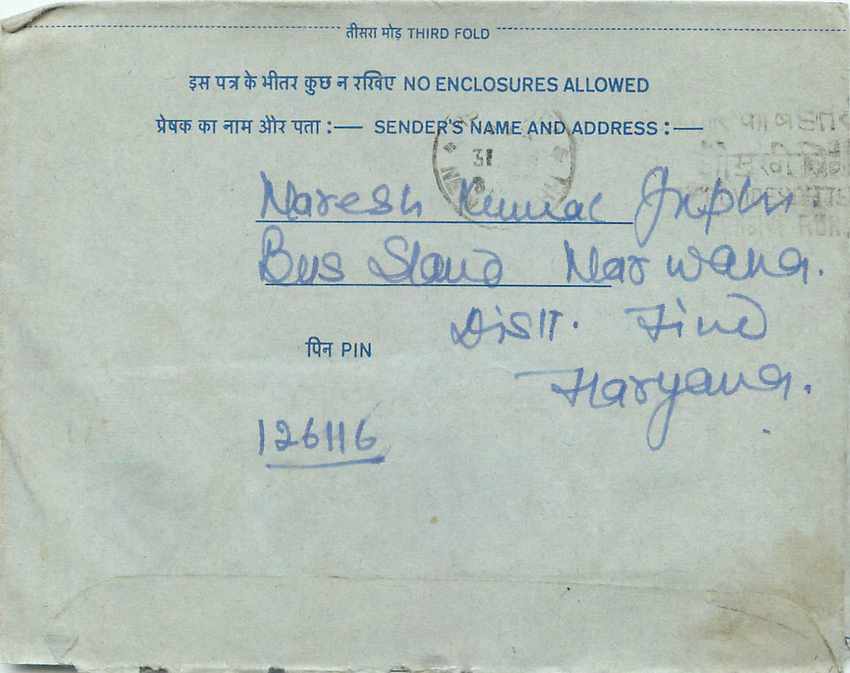 तीसरा मोड़ THIRD FOLD
इस पत्र के भीतर कुछ न रखिए NO ENCLOSURES ALLOWED
प्रेषक का नाम और पता :— SENDER'S NAME AND ADDRESS :—
31
8
Naresh Kumar
Bus Stand Narwana.
Distt. Jind
पिन PIN
Haryana.
126116